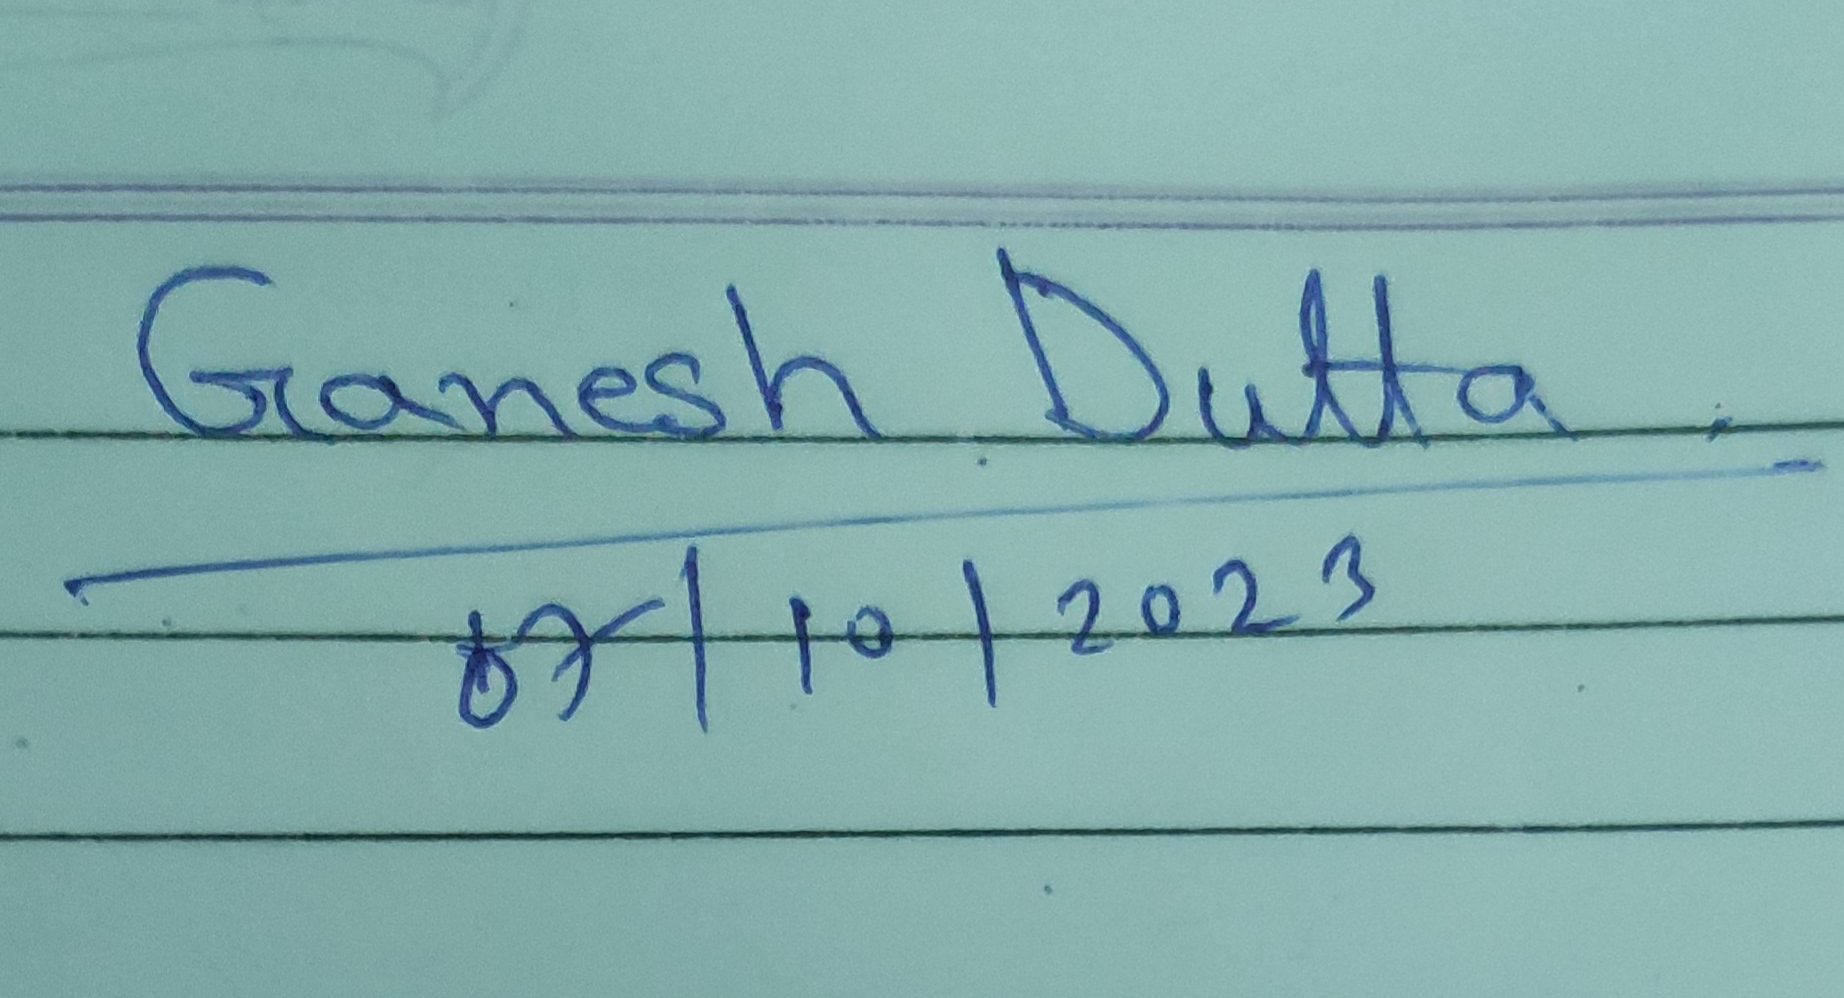 Ganesh Dutta.
07/10/2023